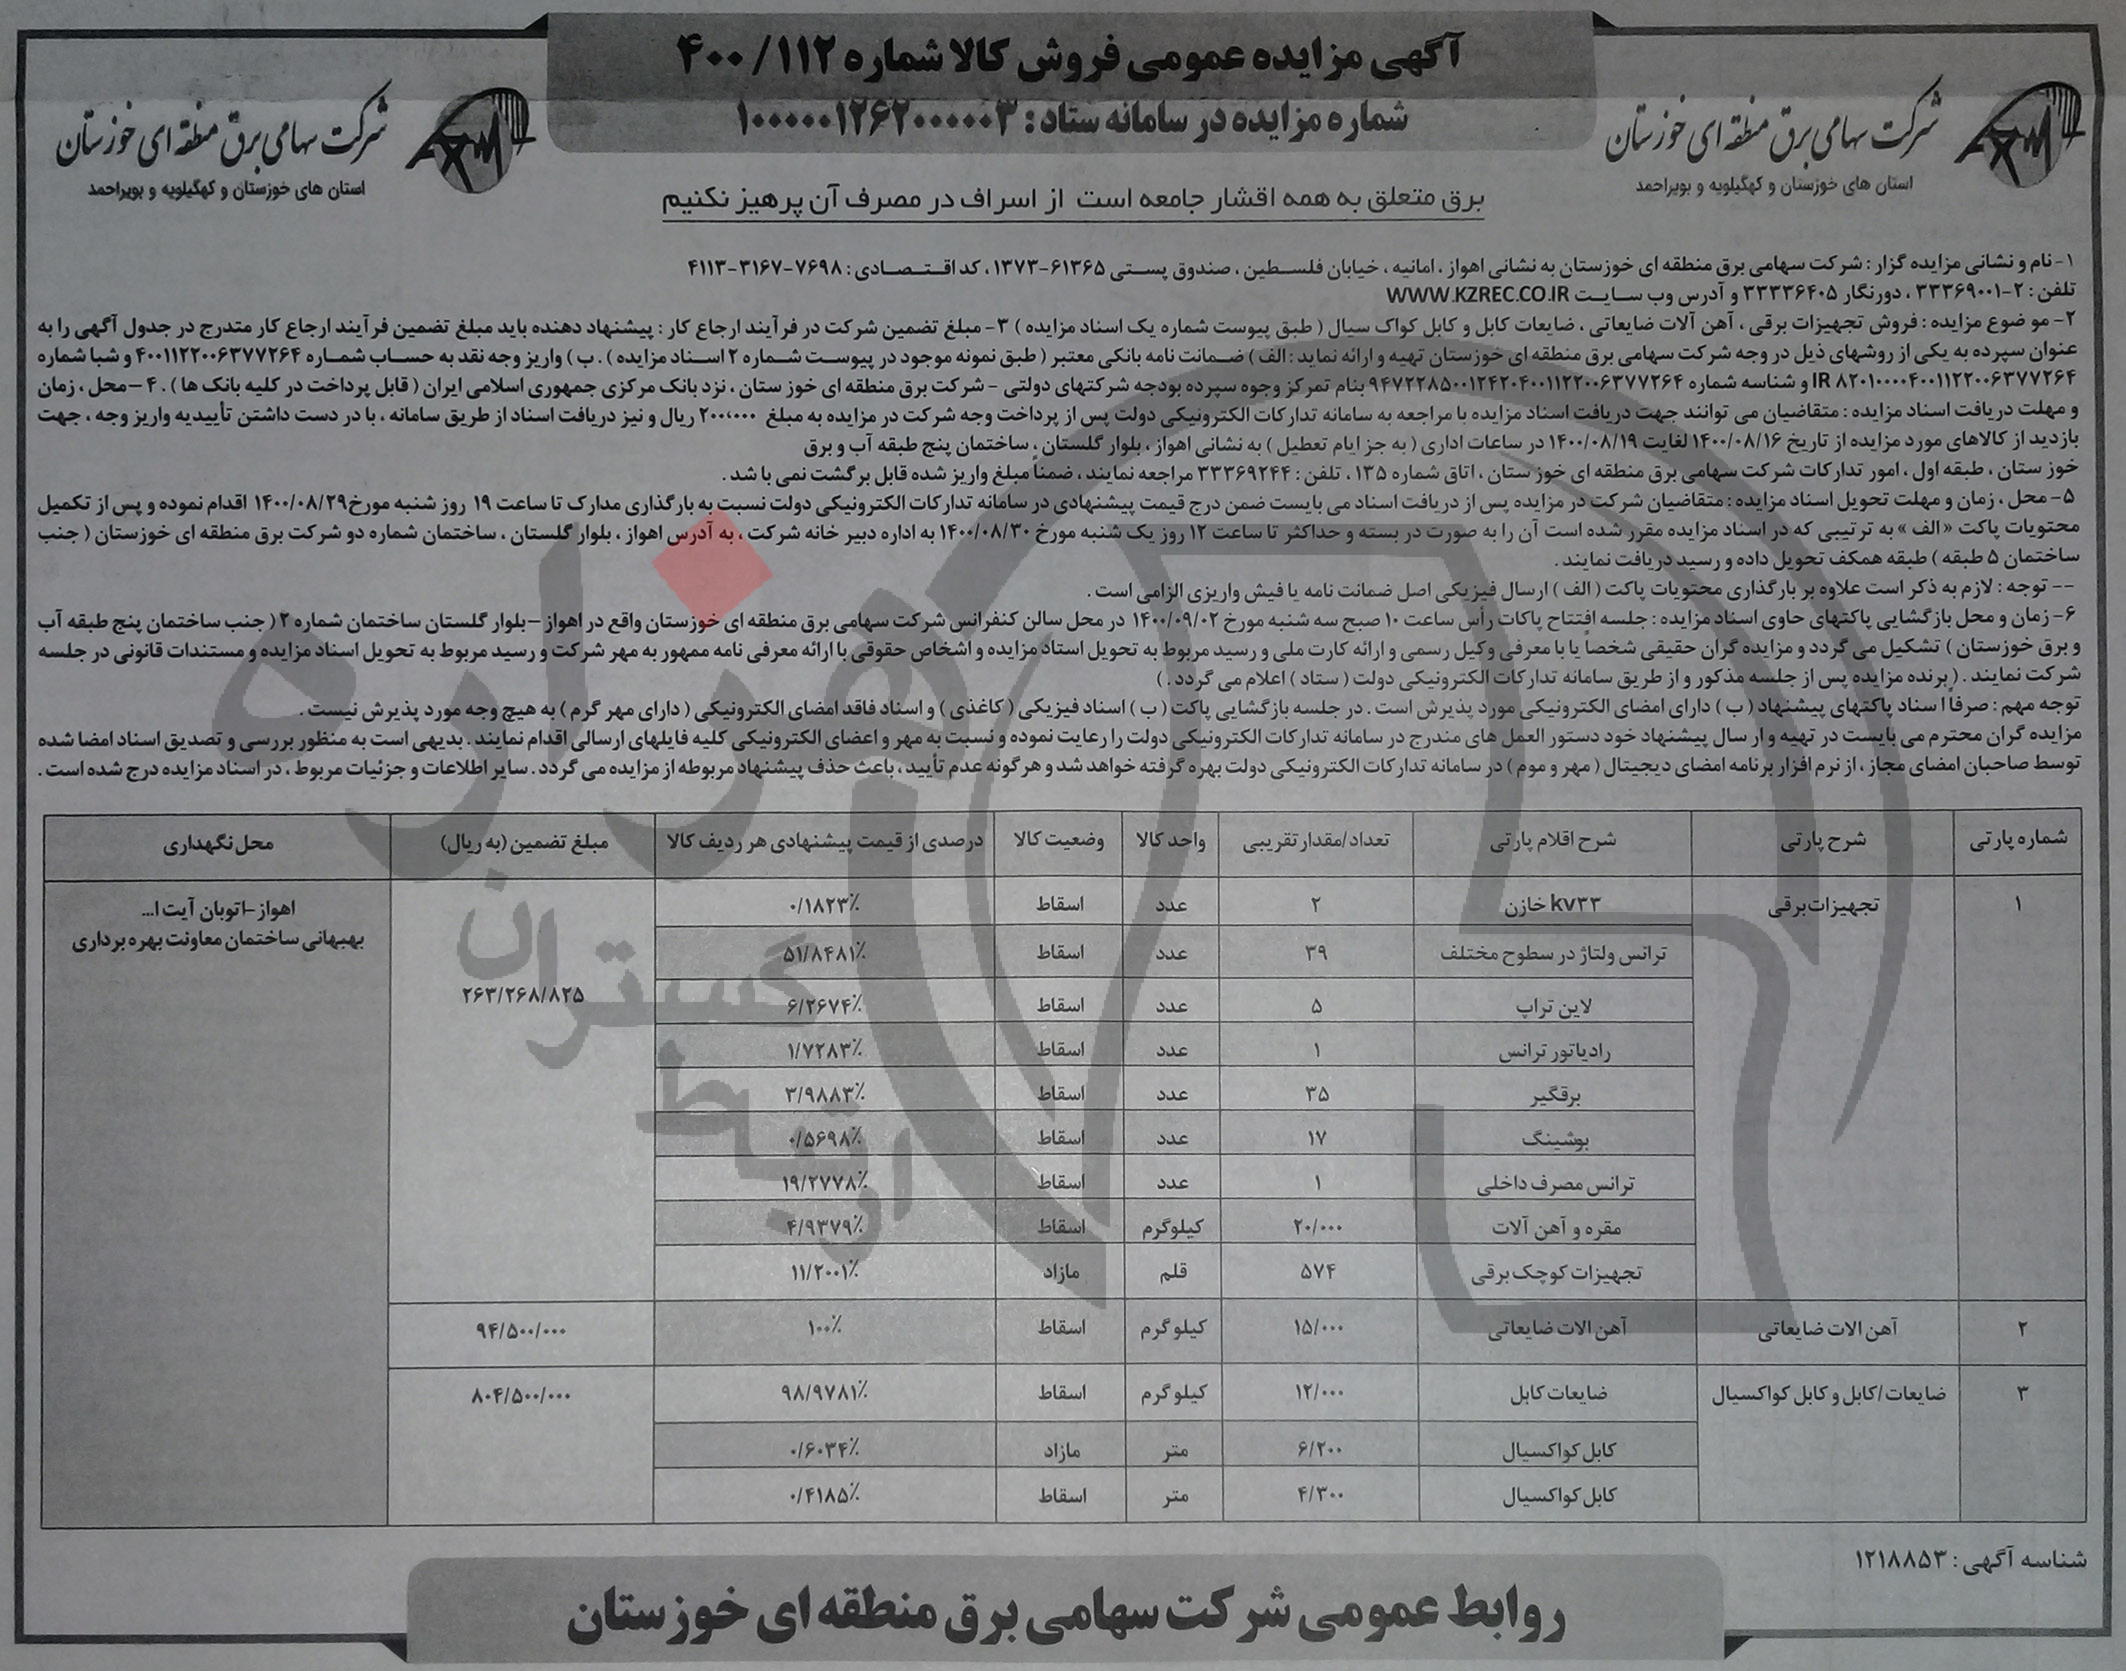 آگهی مزایده عمومی فروش کالا شماره ۴۰۰/۱۱۲
شماره مزایده در سامانه ستاد : ۱۰۰۰۰۰۱۲۶۲۰۰۰۰۰۳
شرکت سهامی برق منطقه ای خوزستان
استان های خوزستان و کهگیلویه و بویراحمد
شرکت سهامی برق منطقه ای خوزستان
استان های خوزستان و کهگیلویه و بویراحمد
برق متعلق به همه اقشار جامعه است از اسراف در مصرف آن پرهیز نکنیم
۱- نام و نشانی مزایده گزار : شرکت سهامی برق منطقه ای خوزستان به نشانی اهواز ، امانیه ، خیابان فلسـطین ، صندوق پستی ۶۱۳۶۵-۱۳۷۳ ، کد اقـتـصـادی : ۷۶۹۸-۳۱۶۷-۴۱۱۳
تلفن : ۲-۳۳۳۶۹۰۰۱ ، دورنگار ۳۳۳۳۶۴۰۵ و آدرس وب سـایـت WWW.KZREC.CO.IR
۲- مو ضوع مزایده : فروش تجهیزات برقی ، آهن آلات ضایعاتی ، ضایعات کابل و کابل کواک سیال ( طبق پیوست شماره یک اسناد مزایده ) ۳- مبلغ تضمین شرکت در فرآیند ارجاع کار : پیشنهاد دهنده باید مبلغ تضمین فرآیند ارجاع کار متدرج در جدول آگهی را به
عنوان سپرده به یکی از روشهای ذیل در وجه شرکت سهامی برق منطقه ای خوزستان تهیه و ارائه نماید : الف ) ضـمانت نامه بانکی معتبر ( طبق نمونه موجود در پیوسـت شماره ۲ اسناد مزایده ) . ب ) واریز وجه نقد به حساب شماره ۴۰۰۱۱۲۲۰۰۶۳۷۷۲۶۴ و شبا شماره
IR ۸۲۰۱۰۰۰۰۴۰۰۱۱۲۲۰۰۶۳۷۷۲۶۴ و شناسه شماره ۹۴۷۲۲۸۵۰۰۱۲۴۲۰۴۰۰۱۱۲۲۰۰۶۳۷۷۲۶۴ بنام تمرکز وجوه سپرده بودجه شرکتهای دولتی - شرکت برق منطقه ای خوز ستان ، نزد بانک مرکزی جمهوری اسلامی ایران ( قابل پرداخت در کلیه بانک ها ) . ۴ -محل ، زمان
و مهلت دریافت اسناد مزایده : متقاضیان می توانند جهت دریافت اسناد مزایده با مراجعه به سامانه تدارکات الکترونیکی دولت پس از پرداخت وجه شرکت در مزایده به مبلغ ۲۰۰،۰۰۰ ریال و نیز دریافت اسناد از طریق سامانه ، با در دست داشتن تأییدیه واریز وجه ، جهت
بازدید از کالاهای مورد مزایده از تاریخ ۱۴۰۰/۰۸/۱۶ لغایت ۱۴۰۰/۰۸/۱۹ در ساعات اداری ( به جز ایام تعطیل ) به نشانی اهواز ، بلوار گلستان ، ساختمان پنج طبقه آب و برق
خوز ستان ، طبقه اول ، امور تدارکات شرکت سهامی برق منطقه ای خوز ستان ، اتاق شماره ۱۳۵ ، تلفن : ۳۳۳۶۹۲۴۴ مراجعه نمایند ، ضمناً مبلغ واریز شده قابل برگشت نمی با شد .
۵- محل ، زمان و مهلت تحویل اسناد مزایده : متقاضیان شرکت در مزایده پس از دریافت اسناد می بایست ضمن درج قیمت پیشنهادی در سامانه تدارکات الکترونیکی دولت نسبت به بارگذاری مدارک تا ساعت ۱۹ روز شنبه مورخ ۱۴۰۰/۰۸/۲۹ اقدام نموده و پس از تکمیل
محتویات پاکت « الف » به ترتیبی که در اسناد مزایده مقرر شده است آن را به صورت در بسته و حداکثر تا ساعت ۱۲ روز یک شنبه مورخ ۱۴۰۰/۰۸/۳۰ به اداره دبیر خانه شرکت ، به آدرس اهواز ، بلوار گلستان ، ساختمان شماره دو شرکت برق منطقه ای خوزستان ( جنب
ساختمان ۵ طبقه ) طبقه همکف تحویل داده و رسید دریافت نمایند .
-- توجه : لازم به ذکر است علاوه بر بارگذاری محتویات پاکت ( الف ) ارسال فیزیکی اصل ضمانت نامه یا فیش واریزی الزامی است .
۶- زمان و محل بازگشایی پاکتهای حاوی اسناد مزایده : جلسه افتتاح پاکات رأس ساعت ۱۰ صبح سه شنبه مورخ ۱۴۰۰/۰۹/۰۲ در محل سالن کنفرانس شرکت سهامی برق منطقه ای خوزستان واقع در اهواز -بلوار گلستان ساختمان شماره ۲ ( جنب ساختمان پنج طبقه آب
و برق خوزستان ) تشکیل می گردد و مزایده گران حقیقی شخصاً یا با معرفی وکیل رسمی و ارائه کارت ملی و رسید مربوط به تحویل استاد مزایده و اشخاص حقوقی با ارائه معرفی نامه ممهور به مهر شرکت و رسید مربوط به تحویل اسناد مزایده و مستندات قانونی در جلسه
شرکت نمایند . ( برنده مزایده پس از جلسه مذکور و از طریق سامانه تدارکات الکترونیکی دولت ( ستاد ) اعلام می گردد . )
توجه مهم : صرفاً ا سناد پاکتهای پیشنهاد ( ب ) دارای امضای الکترونیکی مورد پذیرش است . در جلسه بازگشایی پاکت ( ب ) اسناد فیزیکی ( کاغذی ) و اسناد فاقد امضای الکترونیکی ( دارای مهر گرم ) به هیچ وجه مورد پذیرش نیست .
مزایده گران محترم می بایست در تهیه و ار سال پیشنهاد خود دستور العمل های مندرج در سامانه تدارکات الکترونیکی دولت را رعایت نموده و نسبت به مهر و اعضای الکترونیکی کلیه فایلهای ارسالی اقدام نمایند . بدیهی است به منظور بررسی و تصدیق اسناد امضا شده
توسط صاحبان امضای مجاز ، از نرم افزار برنامه امضای دیجیتال ( مهر و موم ) در سامانه تدارکات الکترونیکی دولت بهره گرفته خواهد شد و هرگونه عدم تأیید ، باعث حذف پیشنهاد مربوطه از مزایده می گردد . سایر اطلاعات و جزئیات مربوط ، در اسناد مزایده درج شده است .
شماره پارتی شرح پارتی شرح اقلام پارتی تعداد/مقدار تقریبی واحد کالا وضعیت کالا درصدی از قیمت پیشنهادی هر ردیف کالا مبلغ تضمین (به ریال) محل نگهداری
۱ تجهیزات برقی kv۳۳ خازن ۲ عدد اسقاط ۰/۱۸۲۳٪ ۲۶۳/۲۶۸/۸۲۵ اهواز-اتوبان آیت ا...
بهبهانی ساختمان معاونت بهره برداری
ترانس ولتاژ در سطوح مختلف ۳۹ عدد اسقاط ۵۱/۸۴۸۱٪
لاین تراپ ۵ عدد اسقاط ۶/۲۶۷۴٪
رادیاتور ترانس ۱ عدد اسقاط ۱/۷۲۸۳٪
برقگیر ۳۵ عدد اسقاط ۳/۹۸۸۳٪
بوشینگ ۱۷ عدد اسقاط ۰/۵۶۹۸٪
ترانس مصرف داخلی ۱ عدد اسقاط ۱۹/۲۷۷۸٪
مقره و آهن آلات ۲۰/۰۰۰ کیلوگرم اسقاط ۴/۹۳۷۹٪
تجهیزات کوچک برقی ۵۷۴ قلم مازاد ۱۱/۲۰۰۱٪
۲ آهن الات ضایعاتی آهن الات ضایعاتی ۱۵/۰۰۰ کیلوگرم اسقاط ۱۰۰٪ ۹۴/۵۰۰/۰۰۰
۳ ضایعات/کابل و کابل کواکسیال ضایعات کابل ۱۲/۰۰۰ کیلوگرم اسقاط ۹۸/۹۷۸۱٪ ۸۰۴/۵۰۰/۰۰۰
کابل کواکسیال ۶/۲۰۰ متر مازاد ۰/۶۰۳۴٪
کابل کواکسیال ۴/۳۰۰ متر اسقاط ۰/۴۱۸۵٪
شناسه آگهی : ۱۲۱۸۸۵۳
روابط عمومی شرکت سهامی برق منطقه ای خوزستان